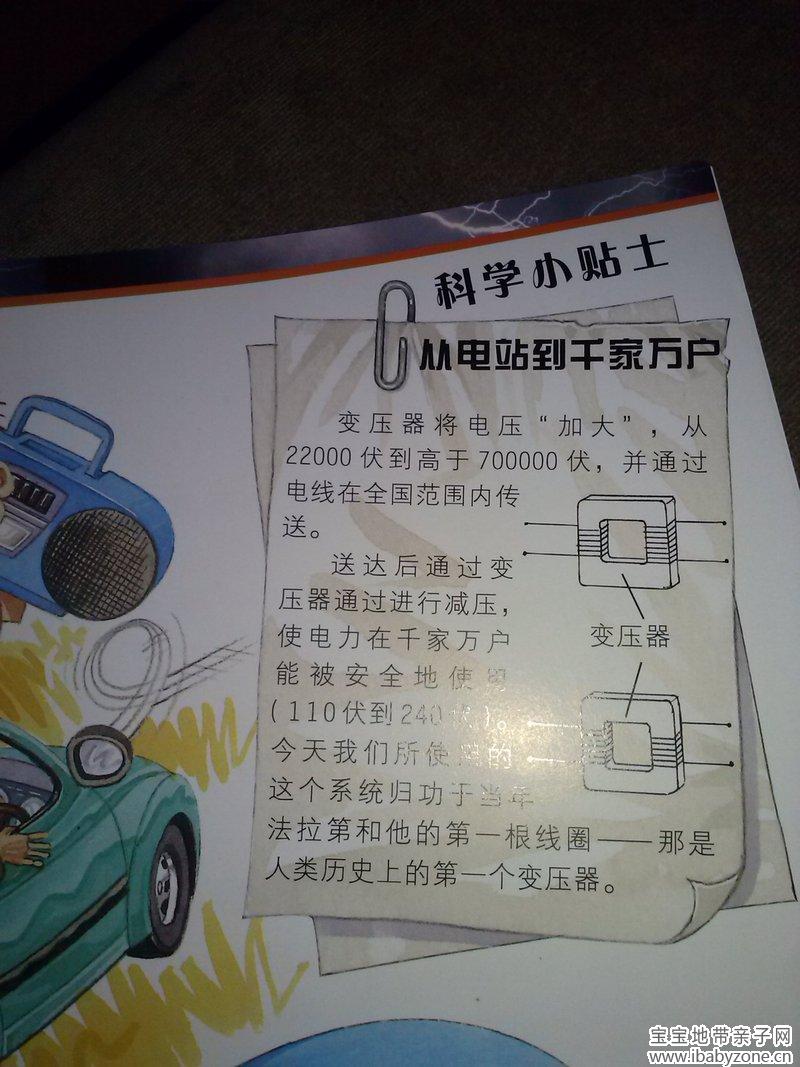 科学小贴士
从电站到千家万户
变压器将电压“加大”，从
22000伏到高于700000伏，并通过
电线在全国范围内传
送。
送达后通过变
压器通过进行减压，
使电力在千家万户
能被安全地使用
(110伏到240伏)。
今天我们所使用的
这个系统归功于当年
法拉第和他的第一根线圈——那是
人类历史上的第一个变压器。
变压器
宝宝地带亲子网
www.ibabyzone.cn